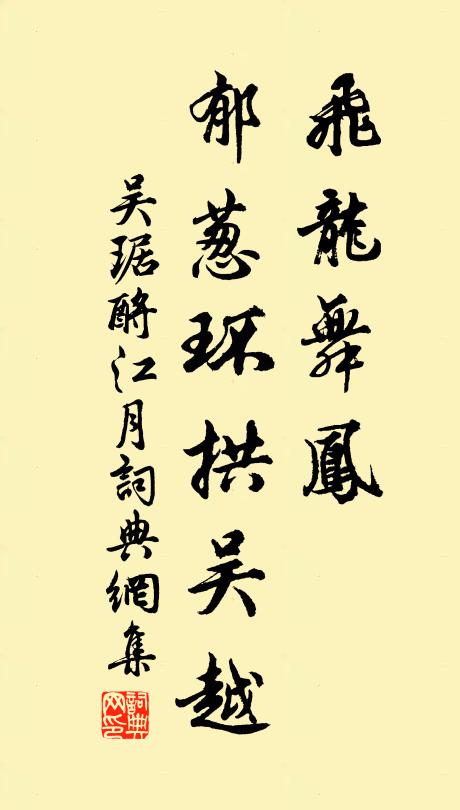 飛龍舞鳳
郁葱环拱吴越
吴琚酹江月詞典網集
詞典网印